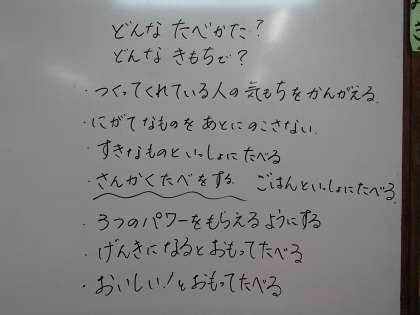 どんな たべかた?
どんな きもちで?
・つくってくれている人の気もちをかんがえる
・にがてなものをあとにのこさない.
・すきなものといっしょにたべる
・さんかくたべをする. ごはんといっしょにたべる.
・3つのパワーをもらえるようにする
・げんきになるとおもってたべる
・おいしい!とおもってたべる